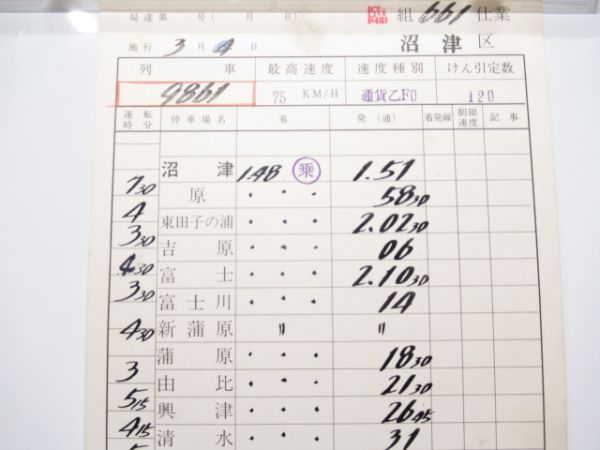 局達第 号 ( 月 日)
臨 組 661 仕業
施行 3 月 4 日
沼津区
列車 最高速度 速度種別 けん引定数
9861 75 KM/H 通貨乙F0 120
運転時分 停車場名 着 発(通) 着発線 制限速度 記事
沼津 1.48 乗 1.51
7 30
原 ・ ・ ・ 58 30
4
東田子の浦 ・ ・ ・ 2.02 30
3 30
吉原 ・ ・ ・ 06
4 30
富士 ・ ・ ・ 2.10 30
3 30
富士川 ・ ・ ・ 14
新蒲原 〃 〃
4 30
蒲原 ・ ・ ・ 18 30
3
由比 ・ ・ ・ 21 30
5 15
興津 ・ ・ ・ 26 45
4 15
清水 ・ ・ ・ 31